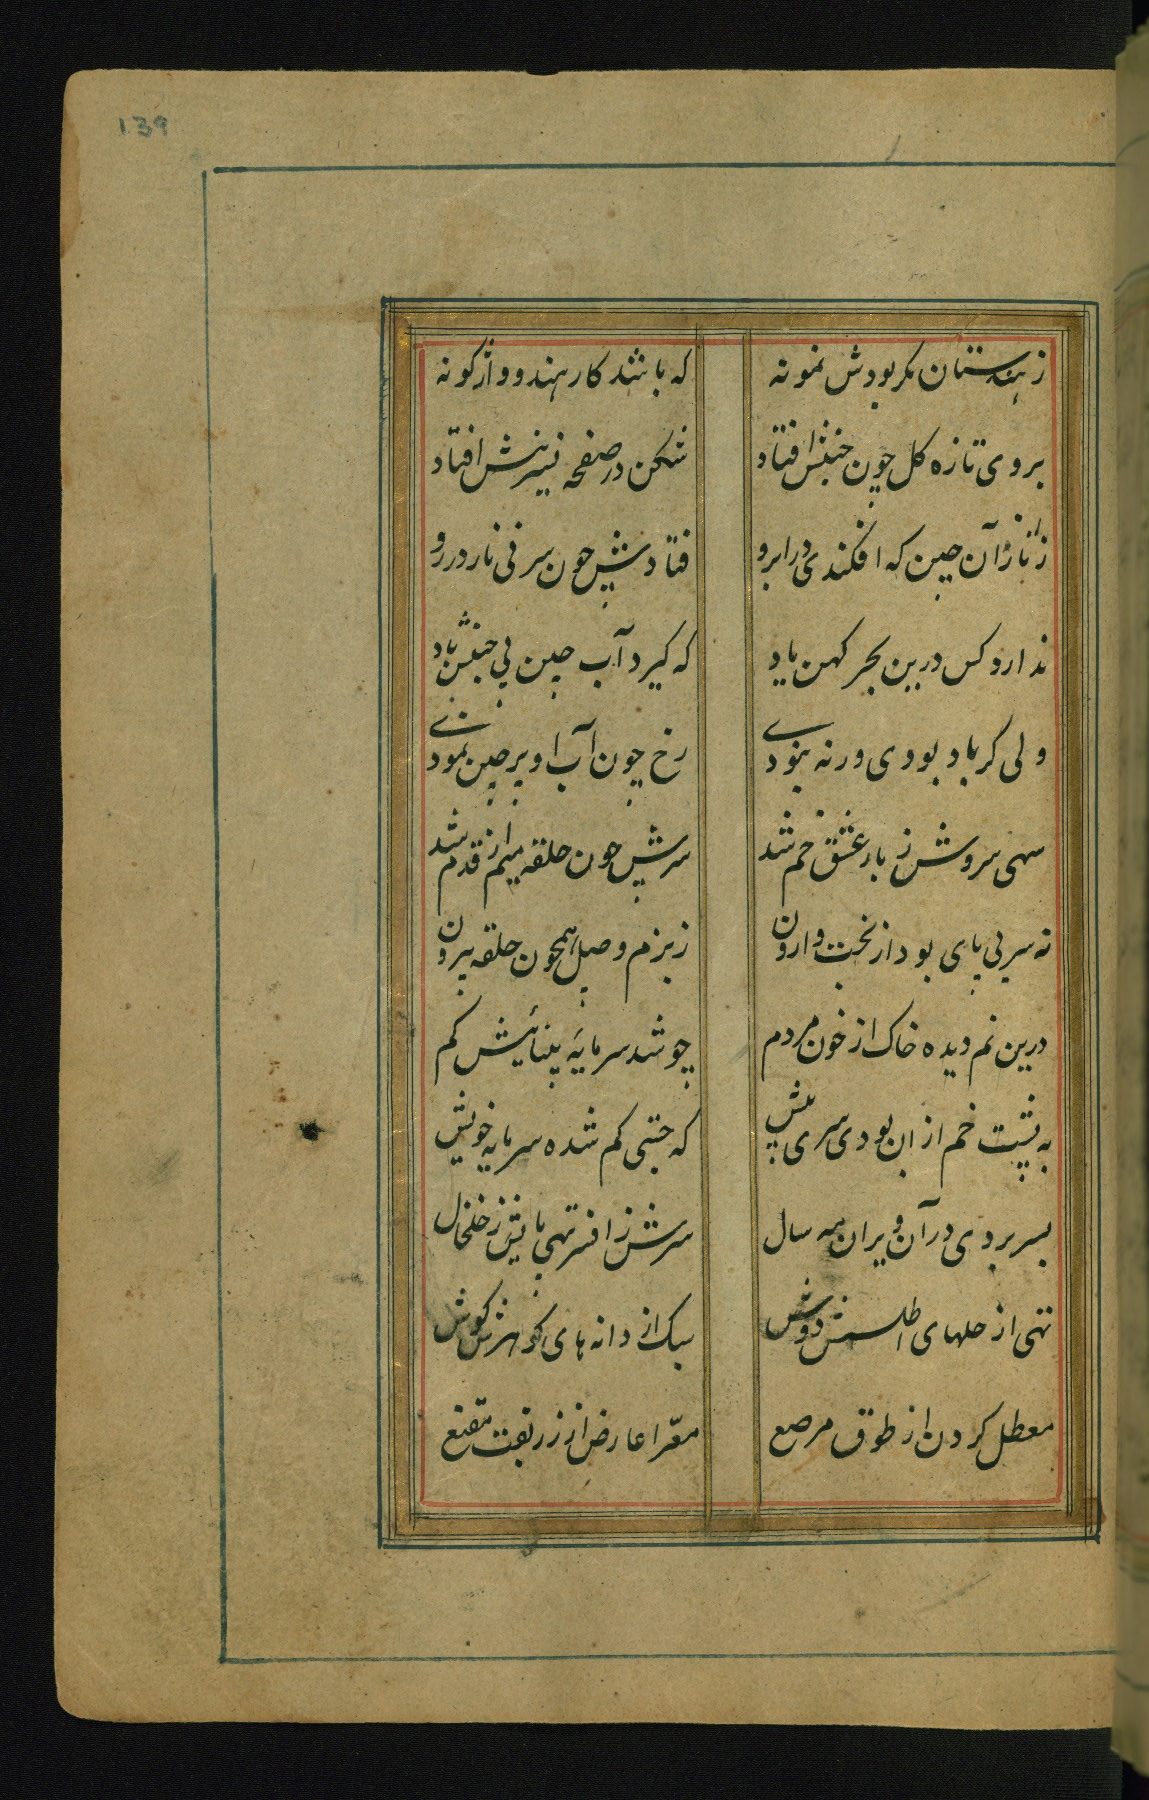 139
ز هندستان مکر بودش نمونه که باشد کار هندو واژکونه
بروی تازه کل چون جنبش افتاد شکن در صفحه نسرینش افتاد
ز ناز آن چین که افکندی در ابرو فتادش چون سرنی نار در رو
ندارد کس درین بحر کهن یاد که کیرد آب چین بی جنبش باد
ولی کر باد بودی ورنه بنودی رخ چون آب او پرچین نمودی
سهی سروش ز بار عشق خم شد سرش چون حلقه میم از قدم شد
نه سر نی پای بود از بخت وارون ز بزم وصل همچون حلقه بیرون
درین نم دیده خاک از خون مردم چو شد سرمایهٔ بینائیش کم
به پشت خم از ان بودی سری پیش که جستی کم شده سرمایه خویش
بسر بردی در آن ویران مه سال سرش ز افسر تهی پایش ز خلخال
تهی از حلهای اطلسش دوش سبک از دانه های کوهرش کوش
معطل کردن از طوق مرصع معرا عارض از زربفت مقنع